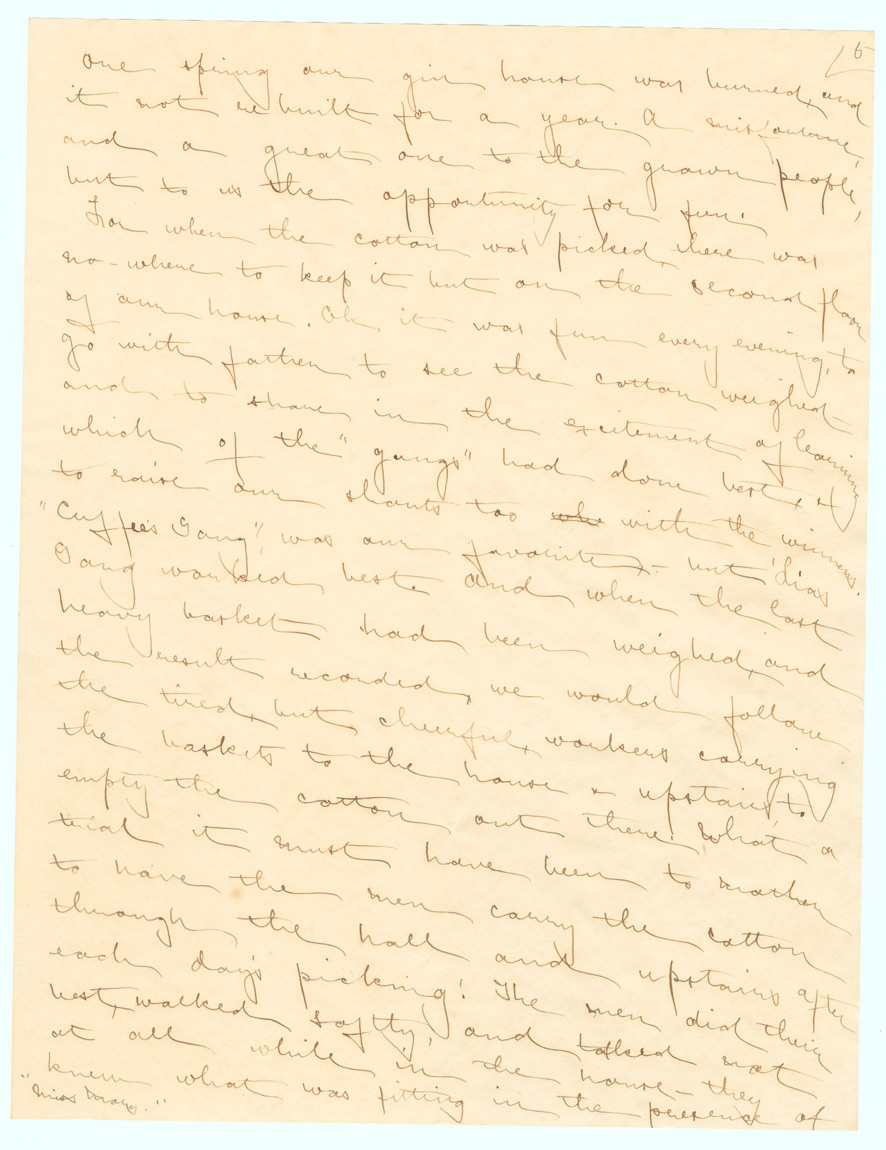 5
One spring our gin house was burned, and
it not re-built for a year. A misfortune,
and a great one to the grown people,
but to us the opportunity for fun.
For when the cotton was picked, there was
no-where to keep it but on the second floor
of our house. Oh, it was fun every evening, to
go with father to see the cotton weighed
and to share in the excitement of learning
which of the "gangs" had done best, &
to raise our shouts too with the winners.
"Cuffee's Gang" was our favorite, - but 'Lias
Gang worked best. And when the last
heavy basket had been weighed, and
the result recorded, we would follow
the tired, but cheerful, workers carrying
the baskets to the house & upstairs, to
empty the cotton out there. What a
trial it must have been to mother
to have the men carry the cotton
through the hall and upstairs after
each day's picking! The men did their
best, walked softly, and talked not
at all while in the house - they
knew what was fitting in the presence of
"Miss Mary."